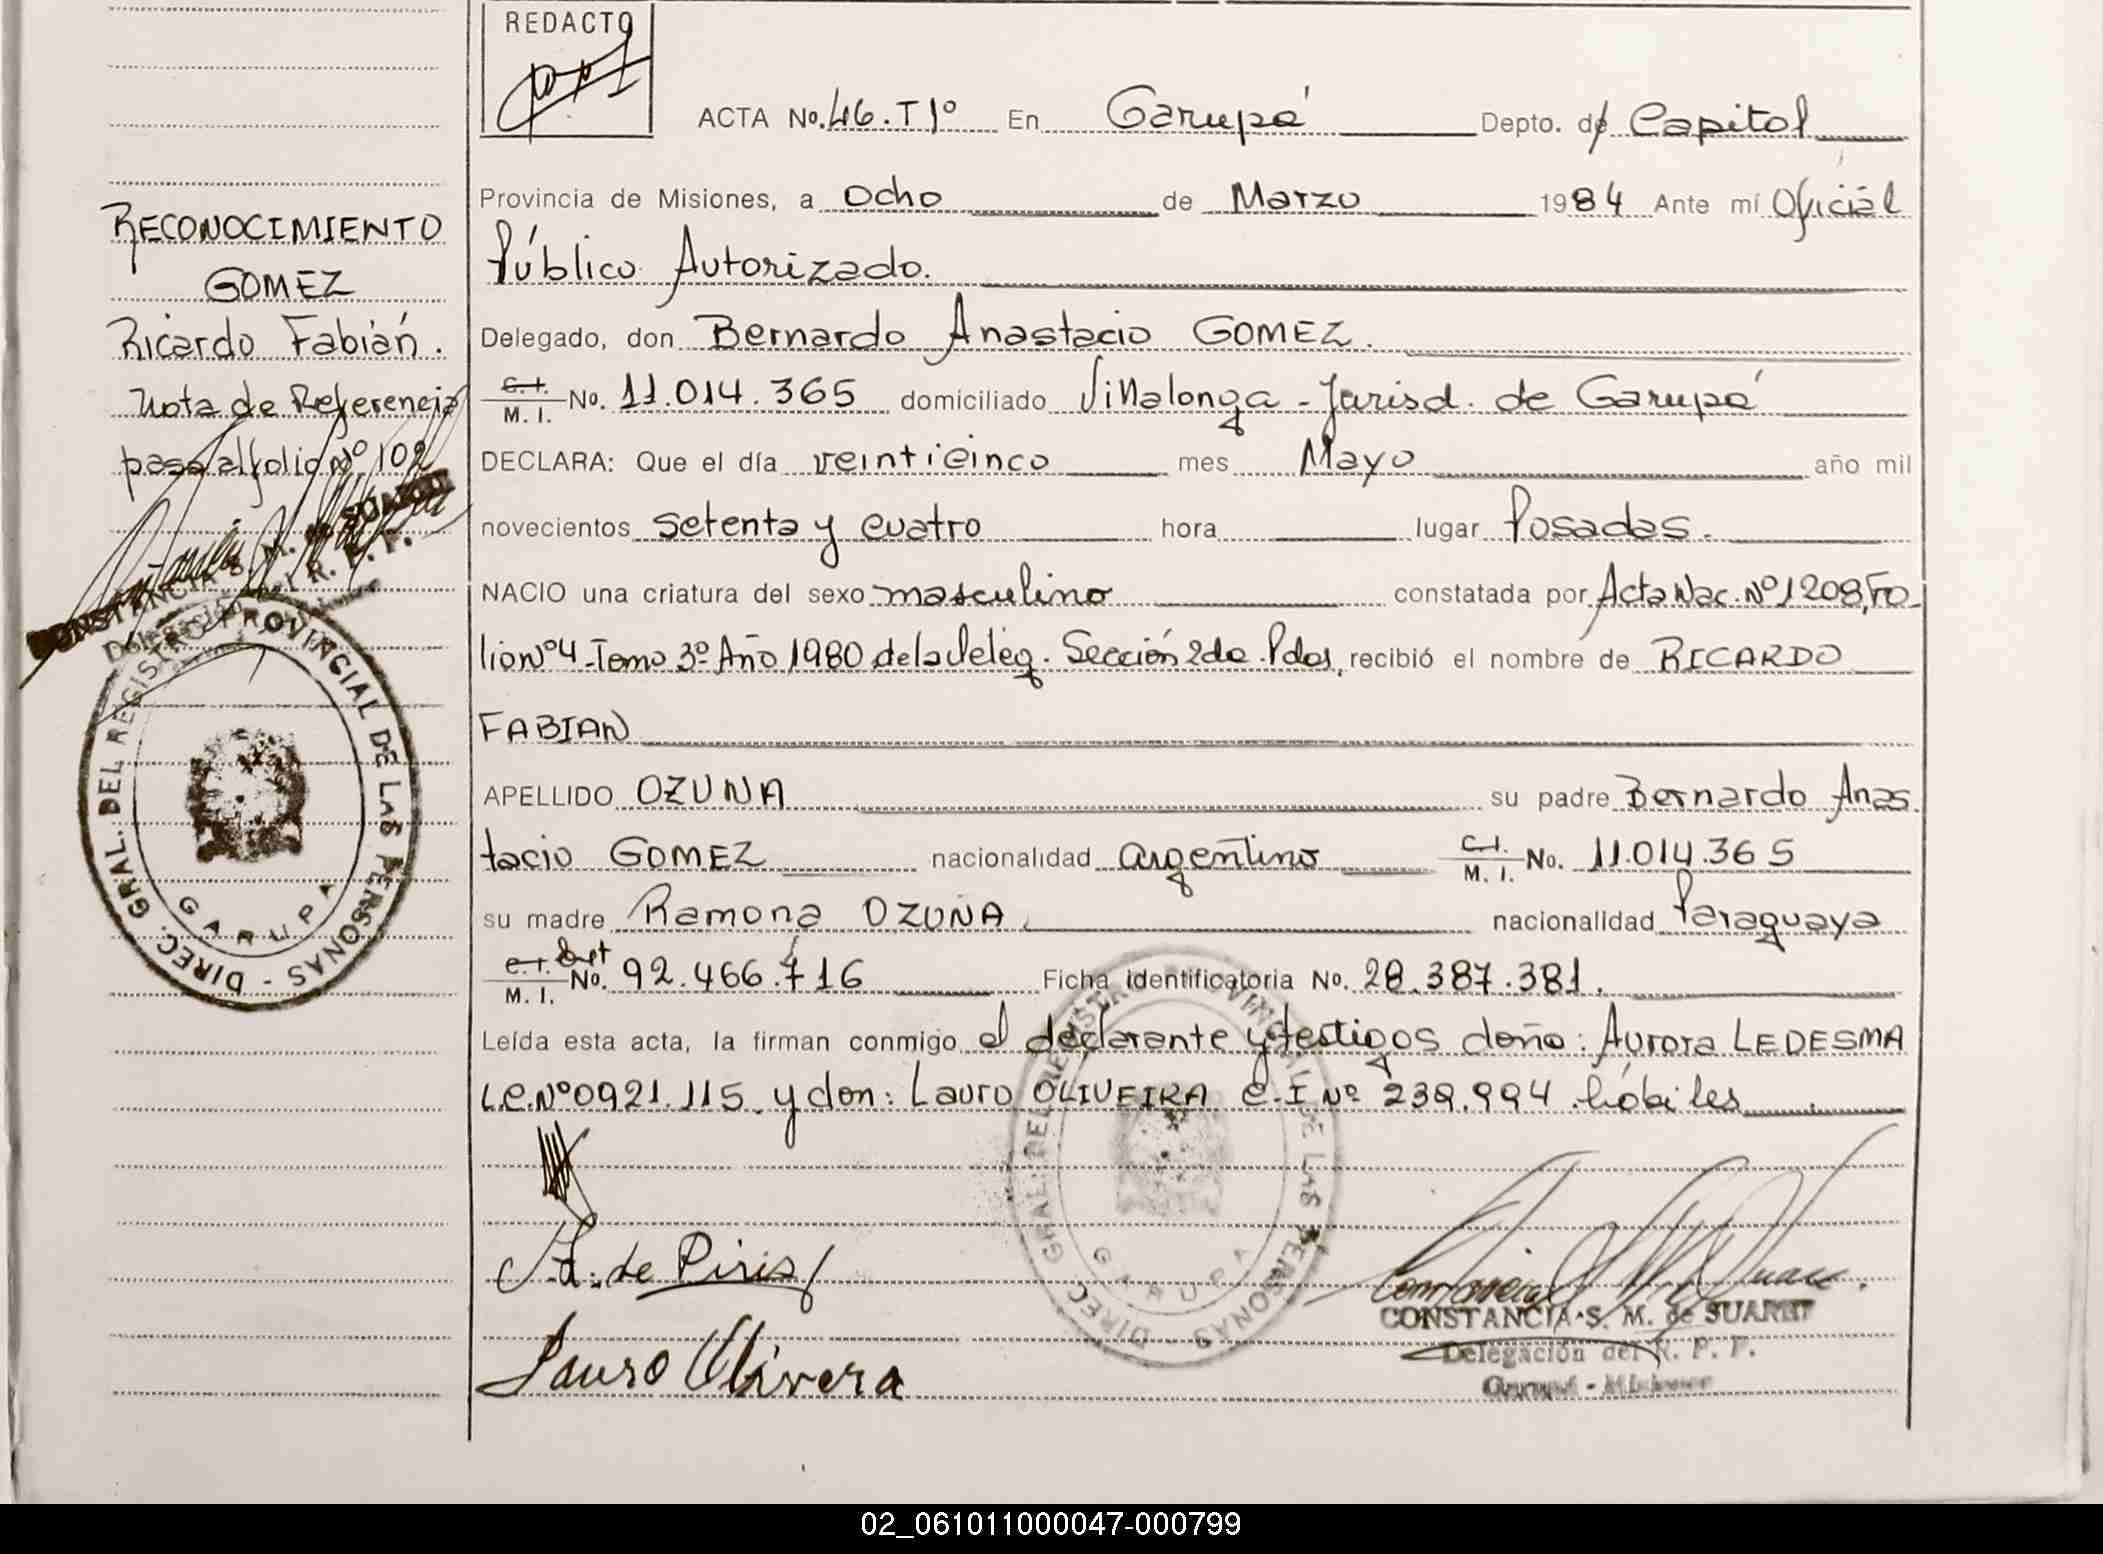 REDACTO
ACTA No. 46. T 1º En Garupá Depto. d/ Capital
Provincia de Misiones, a Ocho de Marzo 1984 Ante mí Oficial
Público Autorizado.
Delegado, don Bernardo Anastacio GOMEZ.
C.I. M. I. No. 11.014.365 domiciliado Villalonga - Jurisd. de Garupá
DECLARA: Que el día veinticinco mes Mayo año mil
novecientos setenta y cuatro hora lugar Posadas.
NACIO una criatura del sexo masculino constatada por Acta Nac. Nº 1208, Fo-
lio nº 4 - Tomo 3º Año 1980 de la Deleg. Sección 2da. Pdas, recibió el nombre de RICARDO
FABIAN
APELLIDO OZUNA su padre Bernardo Anas
tacio GOMEZ nacionalidad argentino C.I. M. I. No. 11.014.365
su madre Ramona OZUNA. nacionalidad Paraguaya
C.I. M. I. No. 92.466.716 Ficha identificatoria No. 28.387.381.
Leída esta acta, la firman conmigo el declarante y testigos doña: Aurora LEDESMA
L.C. Nº 0921.115. y don: Lauro OLIVEIRA C.I Nº 239.994. hábiles
A. L. de Piris
Lauro Olivera
CONSTANCIA S. M. de SUAREZ
Delegación del R. P. P.
Garupá - Misiones
RECONOCIMIENTO
GOMEZ
Ricardo Fabián.
Nota de Referencia
pasa al folio Nº 102
CONSTANCIA S. M. de SUAREZ
Delegación del R. P. P.
DIREC. GRAL. DEL REGISTRO PROVINCIAL DE LAS PERSONAS -
GARUPA
DIREC. GRAL. DEL REGISTRO PROVINCIAL DE LAS PERSONAS -
GARUPA
02_061011000047-000799